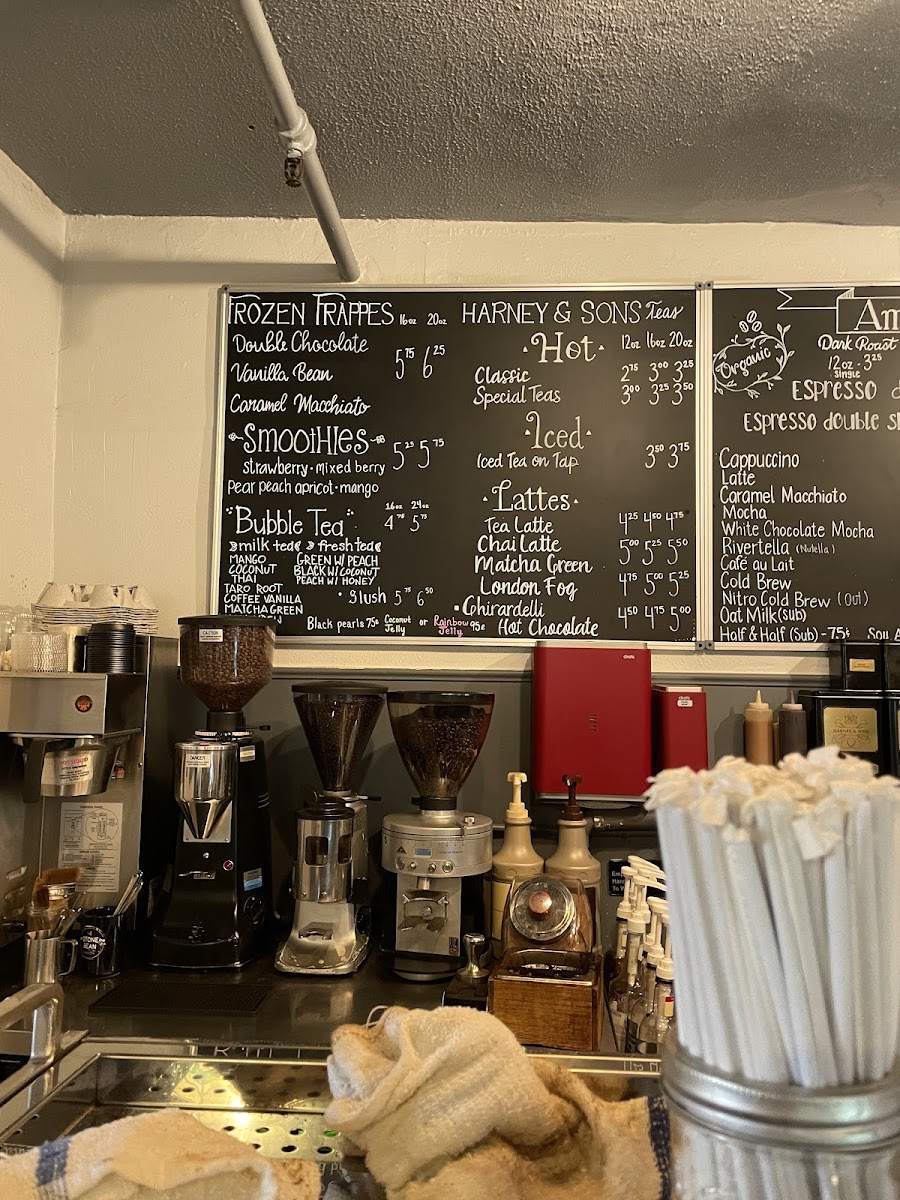 FROZEN FRAPPES 16oz 20oz
Double Chocolate
Vanilla Bean
5.75 6.25
Caramel Macchiato
SMOOTHIES
strawberry · mixed berry 5.25 5.75
Pear peach apricot · mango
16oz 24oz
"Bubble Tea" 4.75 5.75
milk tea fresh tea
MANGO GREEN W/ PEACH
COCONUT BLACK W/ COCONUT
THAI PEACH W/ HONEY
TARO ROOT
COFFEE VANILLA
MATCHA GREEN
· Slush 5.75 6.50
Black pearls 75¢ Coconut Jelly or Rainbow Jelly 95¢
HARNEY & SONS Teas
· Hot · 12oz 16oz 20oz
Classic 2.75 3.00 3.25
Special Teas 3.00 3.25 3.50
· Iced ·
Iced Tea on Tap 3.50 3.75
· Lattes ·
Tea Latte 4.25 4.50 4.75
Chai Latte 5.00 5.25 5.50
Matcha Green
London Fog 4.75 5.00 5.25
· Ghirardelli
Hot Chocolate 4.50 4.75 5.00
Am
Organic
Dark Roast
12oz · 3.25
single
ESPRESSO
ESPRESSO double
Cappuccino
Latte
Caramel Macchiato
Mocha
White Chocolate Mocha
Rivertella (Nutella)
Café au Lait
Cold Brew
Nitro Cold Brew (Out)
Oat Milk (sub)
Half & Half (Sub) - 75¢
CAUTION
DANGER
HOT LIQUID
HARNEY & SONS
BEAN